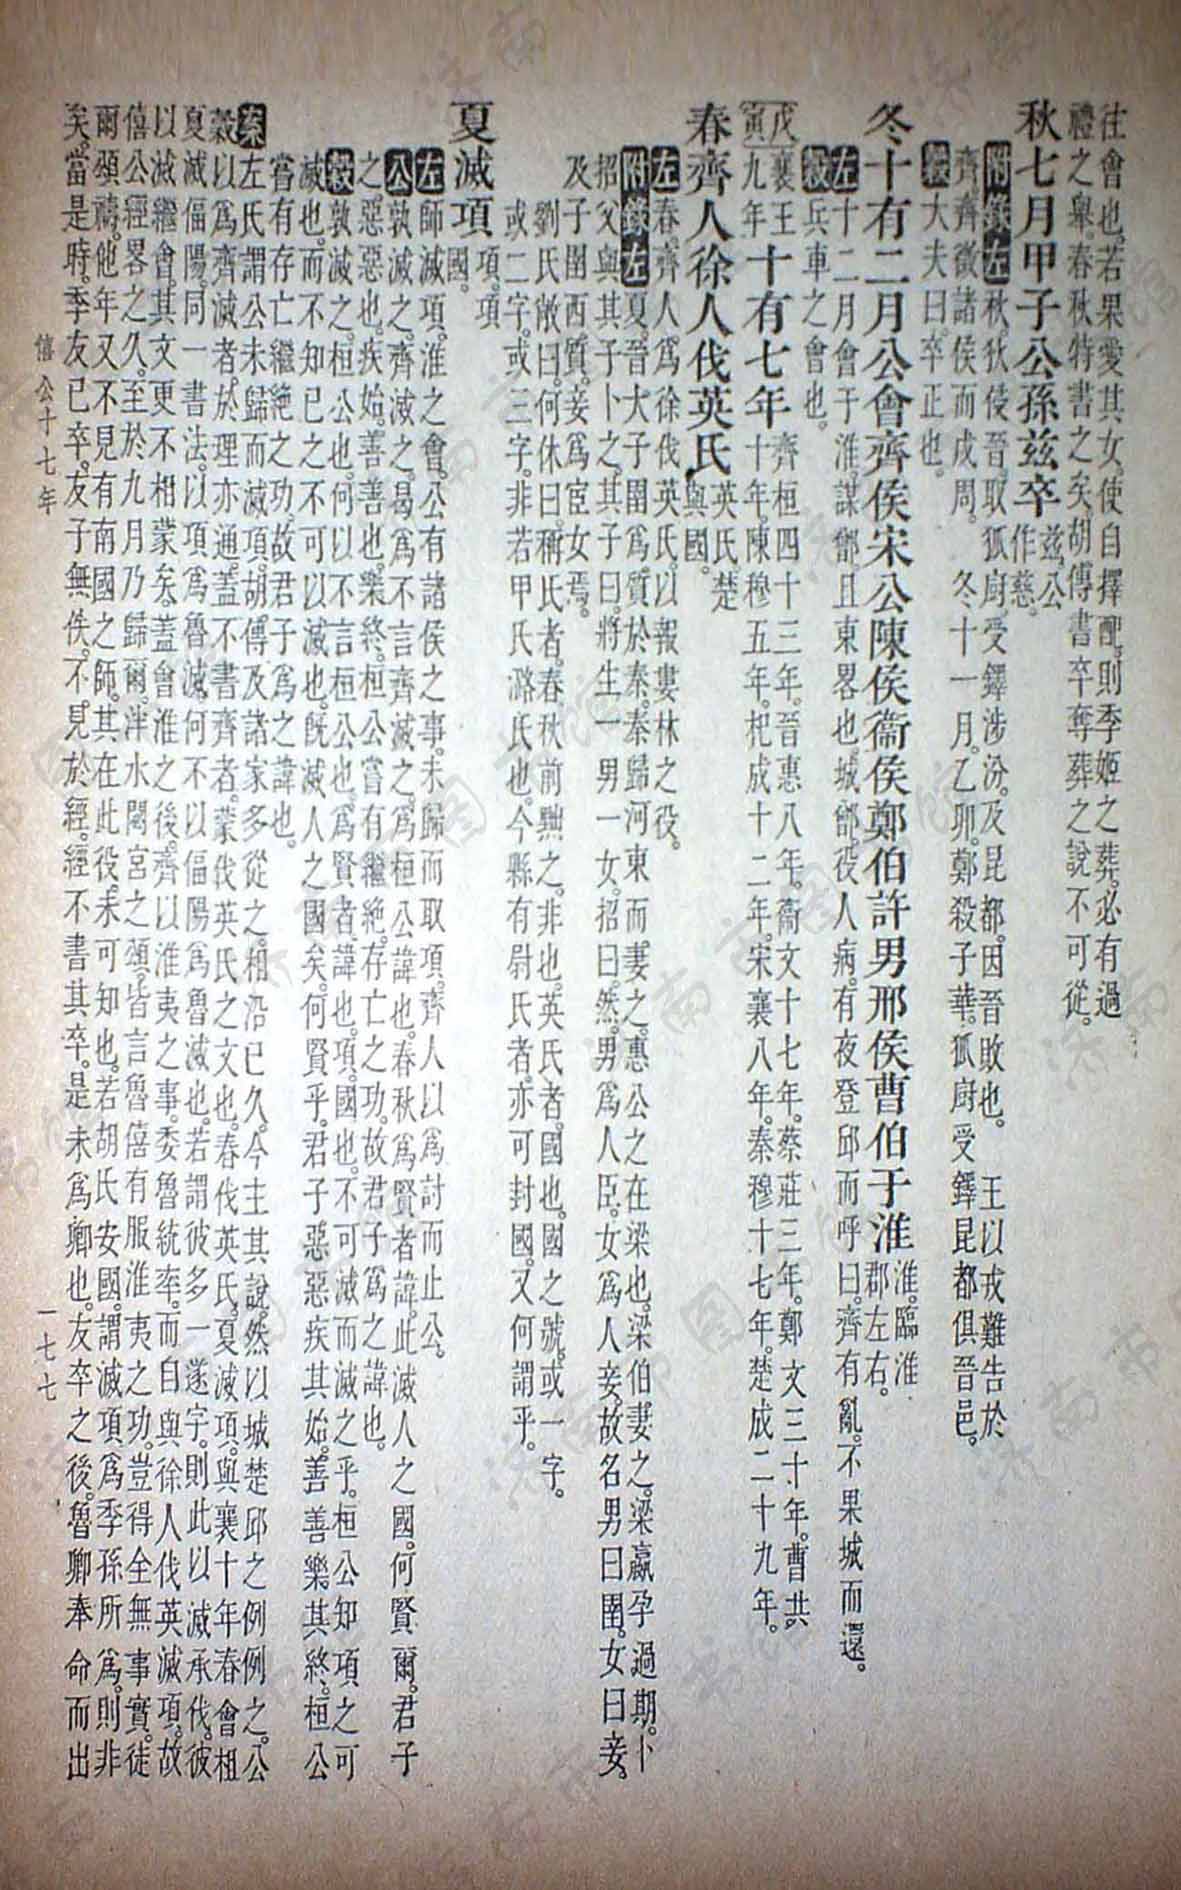 往會也。若果愛其女。使自擇配。則季姬之葬。必有過
禮之舉。春秋特書之矣。胡傳書卒奪葬之說不可從。
秋七月甲子公孫茲卒
茲。公
作慈。
附錄左秋。狄侵晉。取狐廚受鐸。涉汾。及昆都。因晉敗也。 王以戎難告於
齊。齊徵諸侯而戍周。 冬十一月。乙卯。鄭殺子華。狐廚受鐸昆都俱晉邑。
穀大夫曰。卒正也。
冬十有二月公會齊侯宋公陳侯衞侯鄭伯許男邢侯曹伯于淮
淮。臨淮
郡左右。
左十二月會于淮。謀鄫。且東畧也。城鄫。役人病。有夜登邱而呼曰。齊有亂。不果城而還。
穀兵車之會也。
戊寅
襄王九年
十有七年
齊桓四十三年。晉惠八年。衞文十七年。蔡莊三年。鄭文三十年。曹共
十年。陳穆五年。杞成十二年。宋襄八年。秦穆十七年。楚成二十九年。
春齊人徐人伐英氏
英氏。楚
與國。
左春。齊人爲徐伐英氏。以報婁林之役。
附錄左夏。晉大子圉爲質於秦。秦歸河東而妻之。惠公之在梁也。梁伯妻之。梁嬴孕過期。卜
招父與其子卜之。其子曰。將生一男一女。招曰。然。男爲人臣。女爲人妾。故名男曰圉。女曰妾。
及子圉西質。妾爲宦女焉。
劉氏敞曰。何休曰。稱氏者。春秋前黜之。非也。英氏者。國也。國之號。或一字。
或二字。或三字。非若甲氏潞氏也。今縣有尉氏者。亦可封國。又何謂乎。
夏滅項
項。項
國。
左師滅項。淮之會。公有諸侯之事。未歸而取項。齊人以爲討而止公。
公孰滅之。齊滅之。曷爲不言齊滅之。爲桓公諱也。春秋爲賢者諱。此滅人之國。何賢爾。君子
之惡惡也。疾始。善善也。樂終。桓公嘗有繼絕。存亡之功。故君子爲之諱也。
穀孰滅之。桓公也。何以不言桓公也。爲賢者諱也。項。國也。不可滅而滅之乎。桓公知項之可
滅也。而不知已之不可以滅也。旣滅人之國矣。何賢乎。君子惡惡疾其始。善善樂其終。桓公
嘗有存亡繼絕之功。故君子爲之諱也。
案左氏謂公未歸而滅項。胡傳及諸家多從之。相沿已久。今主其說。然以城楚邱之例例之。公
穀以爲齊滅者。於理亦通。蓋不書齊者。蒙伐英氏之文也。春伐英氏。夏滅項。與襄十年春會柤
夏滅偪陽。同一書法。以項爲魯滅。何不以偪陽爲魯滅也。若謂彼多一遂字。則此以滅承伐。彼
以滅繼會。其文更不相蒙矣。蓋會淮之後。齊以淮夷之事。委魯統率。而自與徐人伐英滅項。故
僖公經畧之久。至於九月乃歸爾。泮水閟宮之頌。皆言魯僖有服淮夷之功。豈得全無事實。徒
爾頌禱。他年又不見有南國之師。其在此役。未可知也。若胡氏安國。謂滅項爲季孫所爲。則非
矣。當是時。季友已卒。友子無佚。不見於經。經不書其卒。是未爲卿也。友卒之後。魯卿奉命而出
僖公十七年
一七七